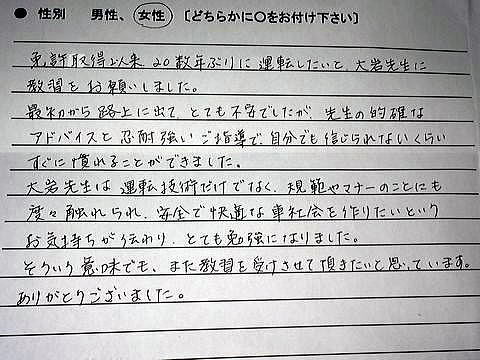 ● 性別　男性、女性 〔どちらかに〇をお付け下さい〕
免許取得以来、20数年ぶりに運転したいと、大岩先生に
教習をお願いしました。
最初から路上に出て、とても不安でしたが、先生の的確な
アドバイスと忍耐強いご指導で、自分でも信じられないくらい
すぐに慣れることができました。
大岩先生は運転技術だけでなく、規範やマナーのことにも
度々触れられ、安全で快適な車社会を作りたいという
お気持ちが伝わり、とても勉強になりました。
そういう意味でも、また教習を受けさせて頂きたいと思っています。
ありがとうございました。